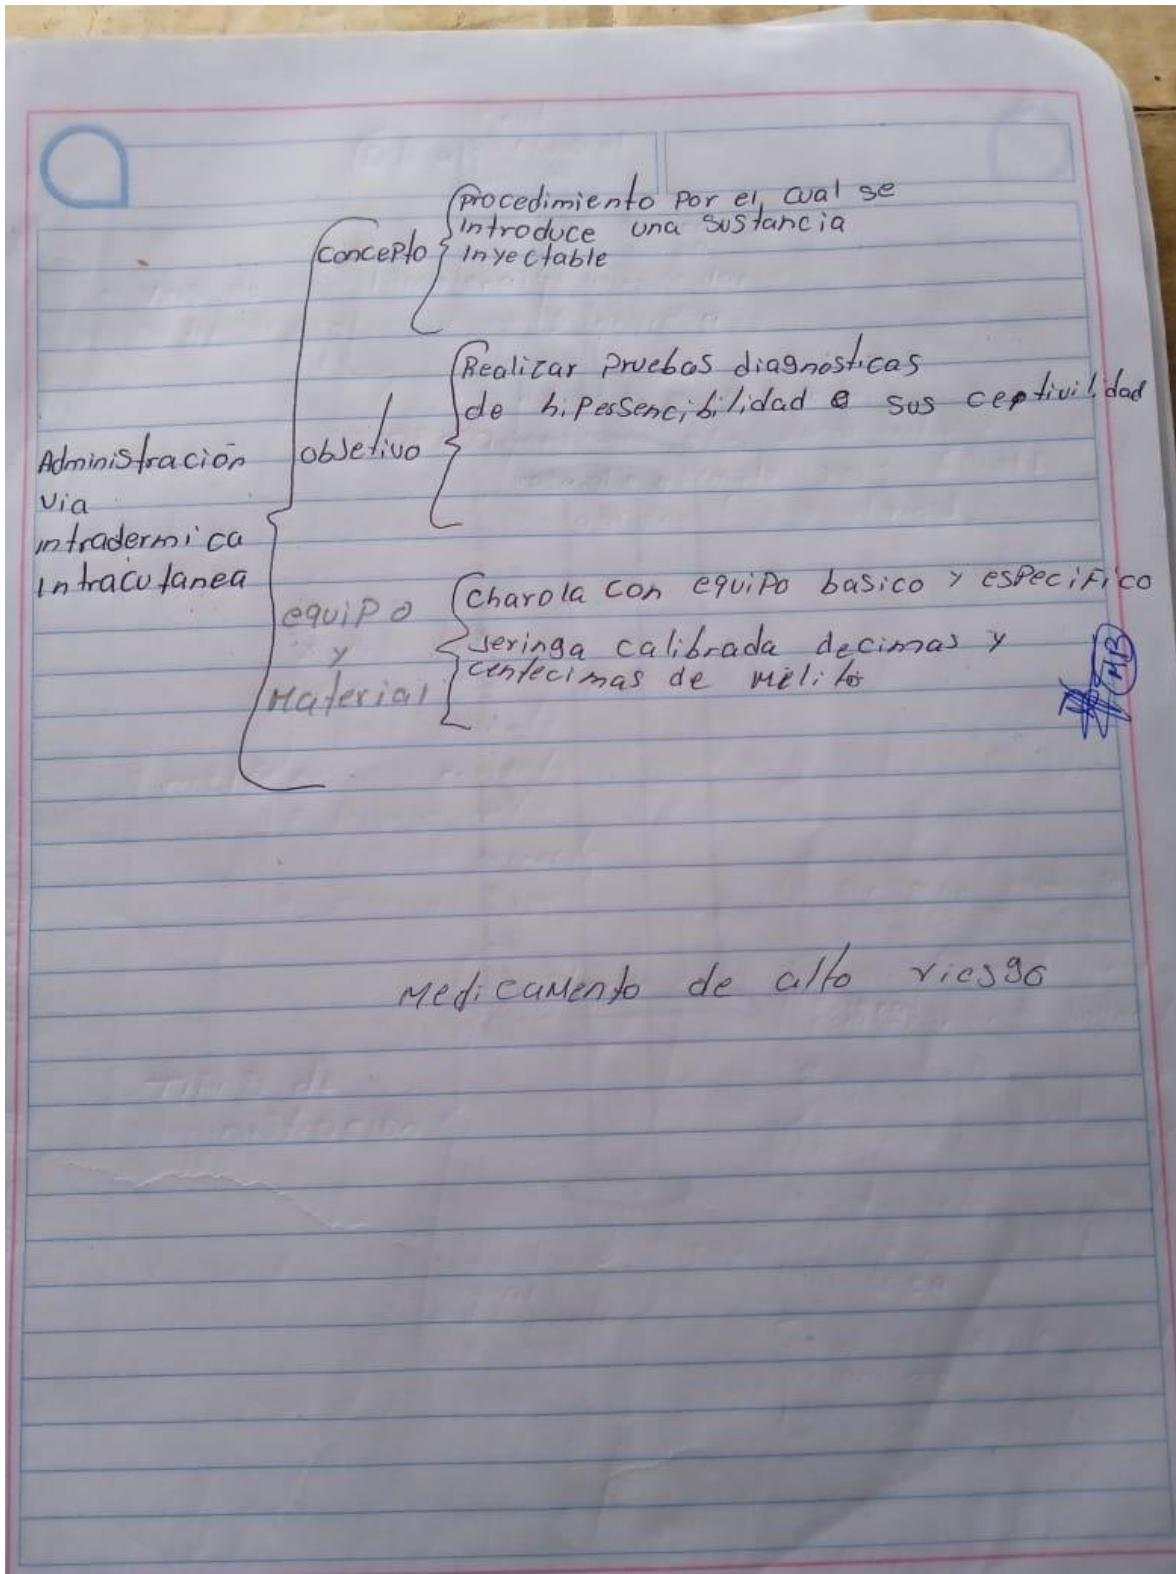 Administración
via
intradermica
Intracutanea
concepto
Procedimiento por el cual se
introduce una sustancia
inyectable
objetivo
Realizar pruebas diagnósticas
de hipessencibilidad e sus ceptivilidad
equipo
y
Material
Charola con equipo basico y especifico
seringa calibrada decimas y
centecimas de
MB
Medicamento de alto riesgo